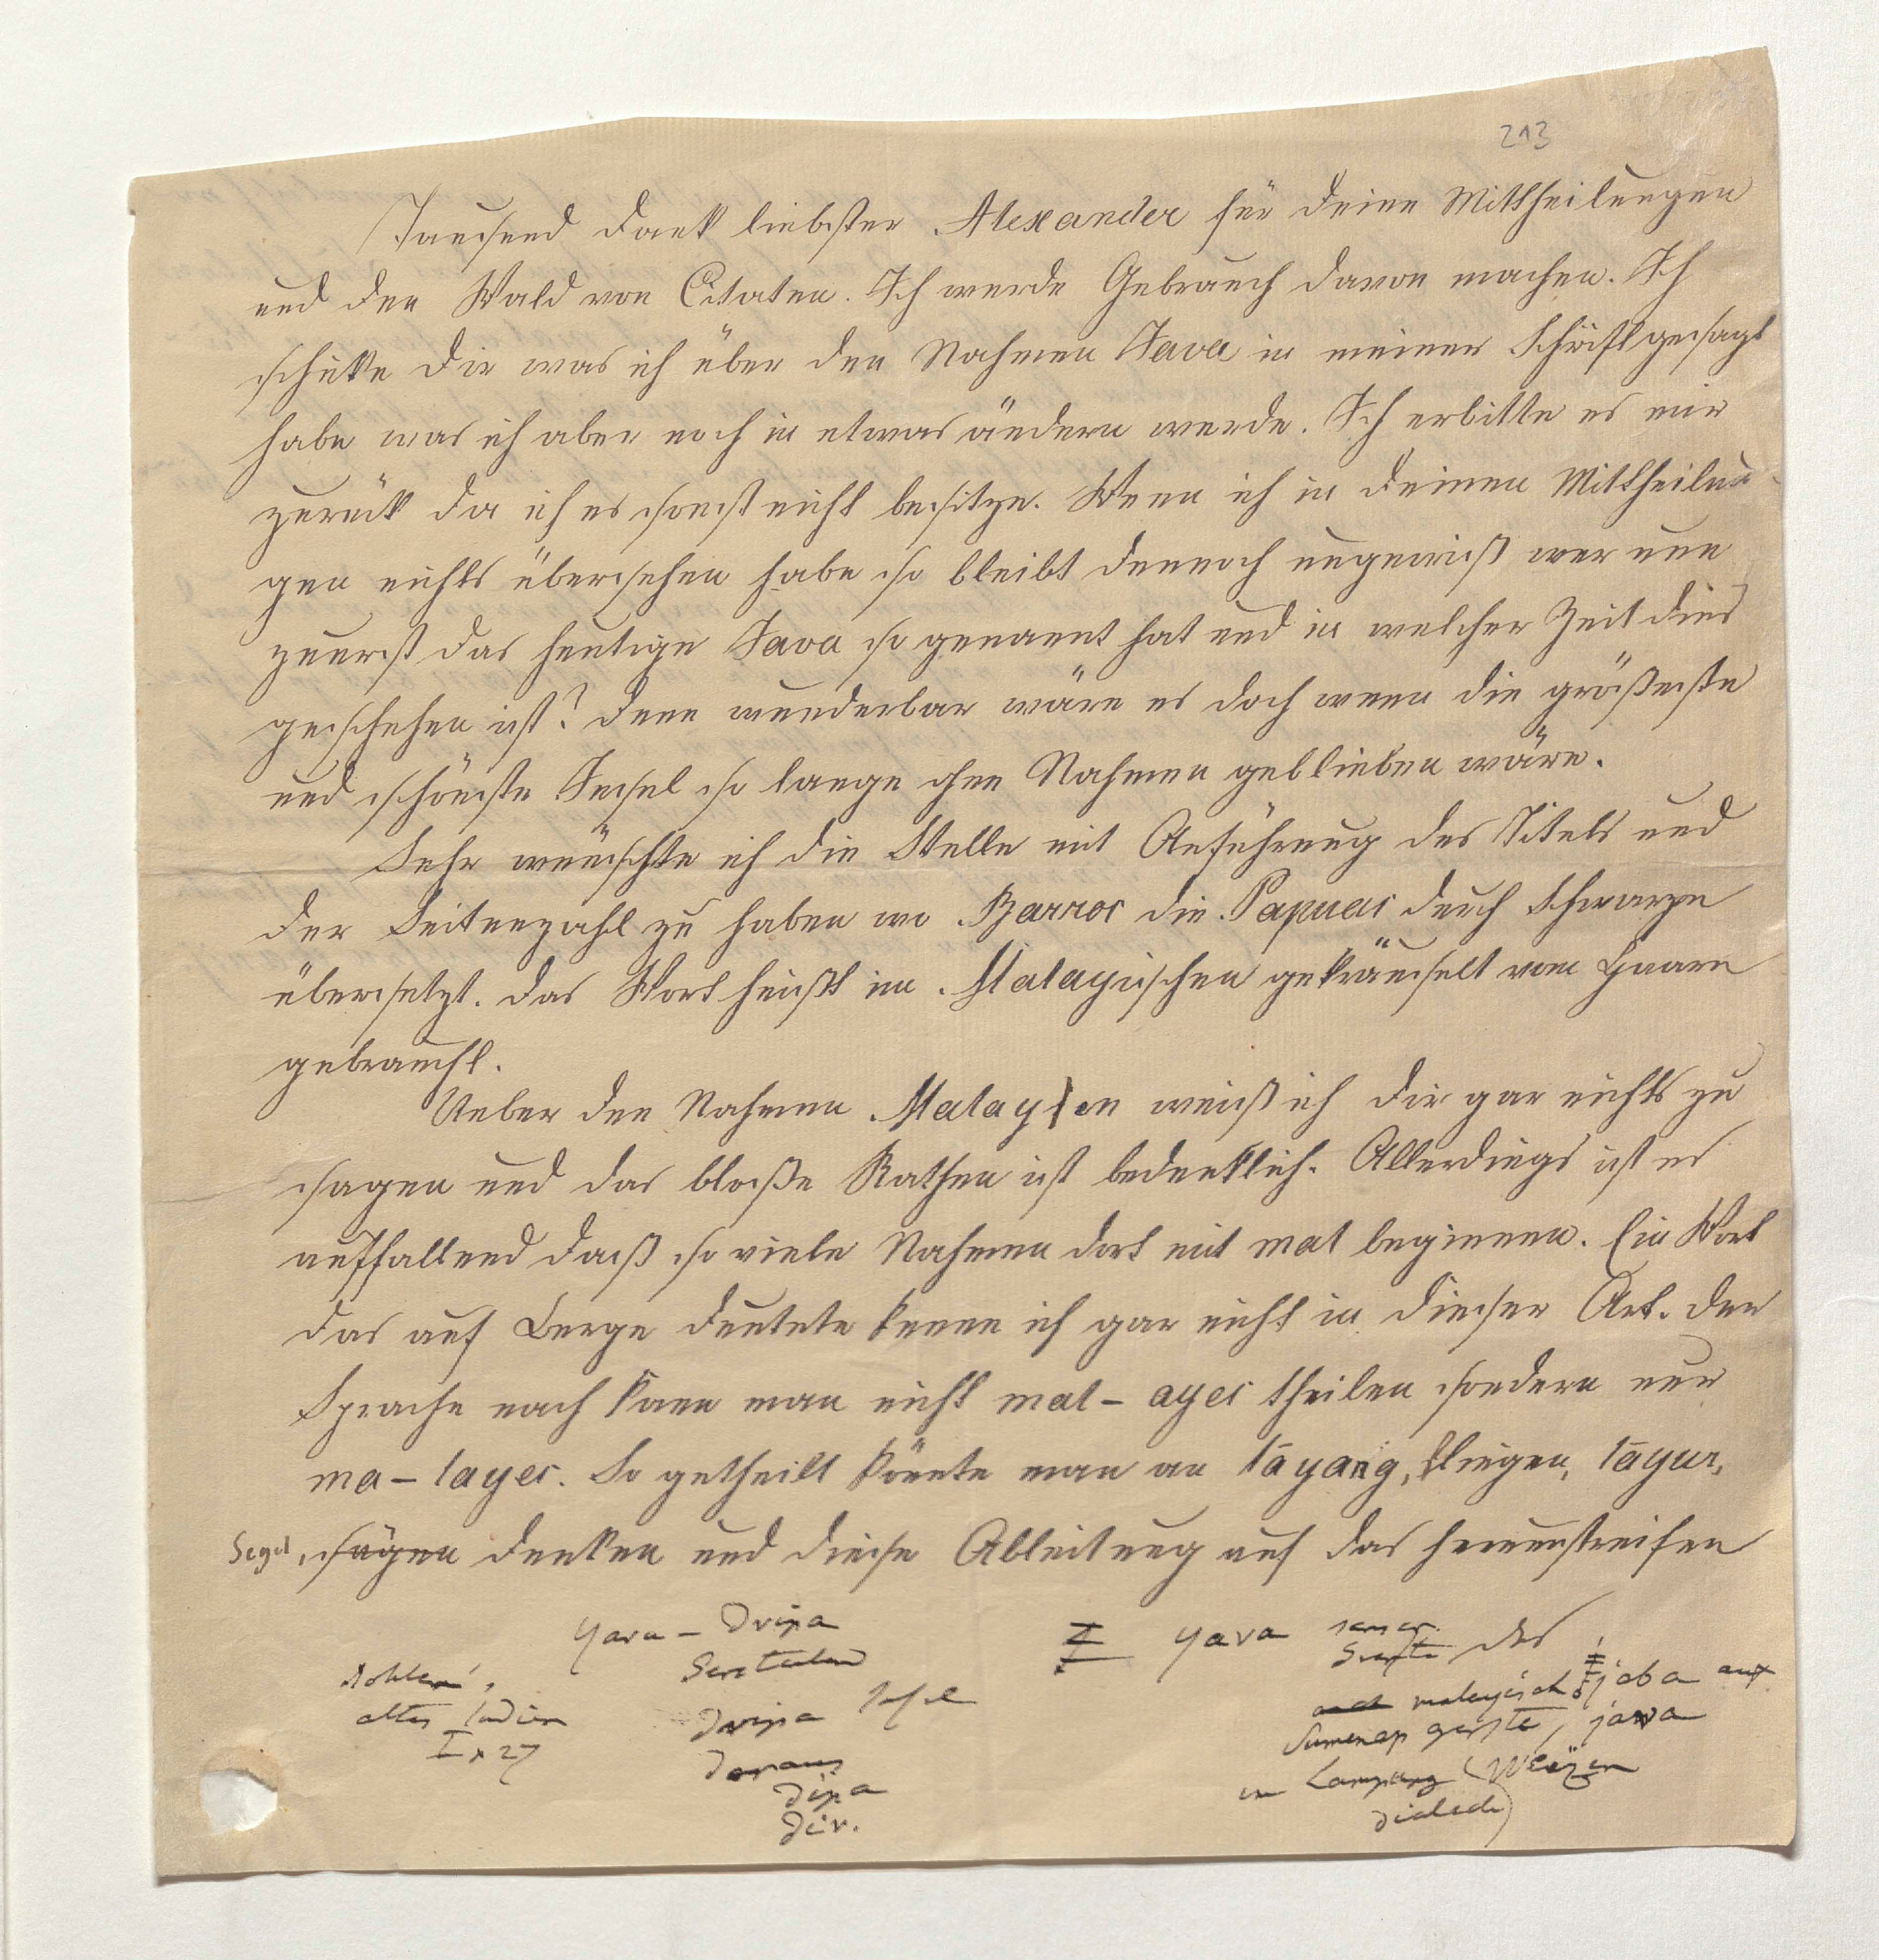 213
Tausend Dank liebster Alexander für Deine Mittheilungen
und den Wald von Citaten. Ich werde Gebrauch davon machen. Ich
schicke Dir was ich über den Nahmen Java in meiner Schrift gesagt
habe was ich aber noch in etwas ändern werde. Ich erbitte es mir
zurück da ich es sonst nicht besitze. Wenn ich in Deinen Mittheilun
gen nichts übersehen habe so bleibt dennoch ungewiß wer nun
zuerst das heutige Java so genannt hat und in welcher Zeit dies
geschehen ist? Denn wunderbar wäre es doch wenn die größeste
und schönste Insel so lange ohne Nahmen geblieben wäre.
Sehr wünschte ich die Stelle mit Anführung des Titels und
der Seitenzahl zu haben wo Barros die Papuas durch Schwarze
übersetzt. Das Wort heißt im Malayischen gekräuselt vom Haare
gebraucht.
Ueber den Nahmen Malayen weiß ich Dir gar nichts zu
sagen und das bloße Rathen ist bedenklich. Allerdings ist es
auffallend daß so viele Nahmen dort mit mal beginnen. Ein Wort
das auf Berge deutete kenne ich gar nicht in dieser Art. Der
Sprache nach kann man nicht mal - ayer theilen sondern nur
ma - layer. So getheilt könnte man an lāyang, fliegen, lāyar,
Segel, sägen denken und diese Ableitung auf das herumstreifen
Yava - Dvipa
Bohlen,
altes Indien
I p 27
Gersteland
Dvipa Insel
daraus
Dipa
Div.
‡ Yava sanscr.
Gerste das
auch malayisch ‡ jaba auf
Sumenap gerste, java
im Lampung (Weizen
dialect)